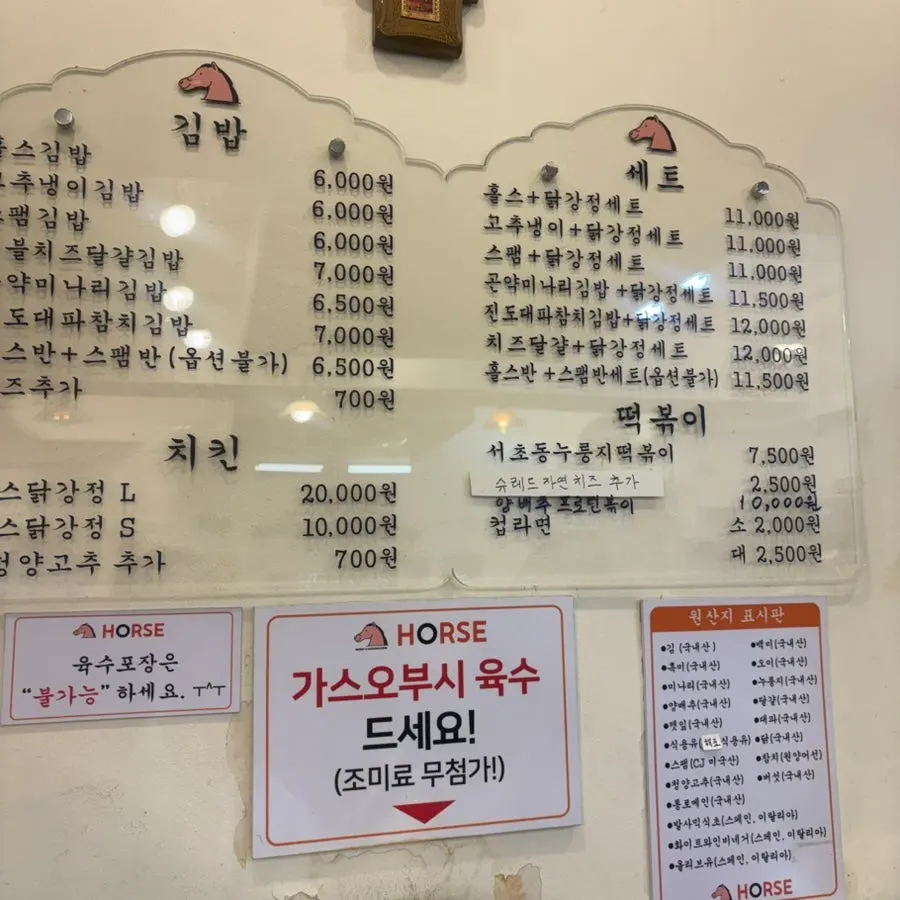 김밥
스김밥
추냉이김밥
팸김밥
블치즈달걀김밥
약미나리김밥
도대파참치김밥
스반+스팸반(옵션불가)
즈추가
6,000원
6,000원
6,000원
7,000원
6,500원
7,000원
6,500원
700원
치킨
스닭강정 L 20,000원
스닭강정 S 10,000원
청양고추 추가 700원
세트
홀스+닭강정세트 11,000원
고추냉이+닭강정세트 11,000원
스팸+닭강정세트 11,000원
곤약미나리김밥+닭강정세트 11,500원
진도대파참치김밥+닭강정세트 12,000원
치즈달걀+닭강정세트 12,000원
홀스반+스팸반세트(옵션불가) 11,500원
떡볶이
서초동누룽지떡볶이 7,500원
슈레드 자연치즈 추가 2,500원
양배추 프로틴볶이 10,000원
컵라면 소 2,000원
대 2,500원
HORSE
육수포장은
"불가능" 하세요. ㅜ^ㅜ
HORSE
가스오부시 육수
드세요!
(조미료 무첨가!)
원산지 표시판
•김(국내산) •백미(국내산)
•흑미(국내산) •오이(국내산)
•미나리(국내산) •누룽지(국내산)
•양배추(국내산) •달걀(국내산)
•깻잎(국내산) •대파(국내산)
•식용유(식용유) •닭(국내산)
•스팸(CJ 미국산) •참치(원양어선)
•청양고추(국내산) •버섯(국내산)
•통로메인(국내산)
•발사믹식초(스페인, 이탈리아)
•화이트와인비네거(스페인, 이탈리아)
•올리브유(스페인, 이탈리아)
HORSE